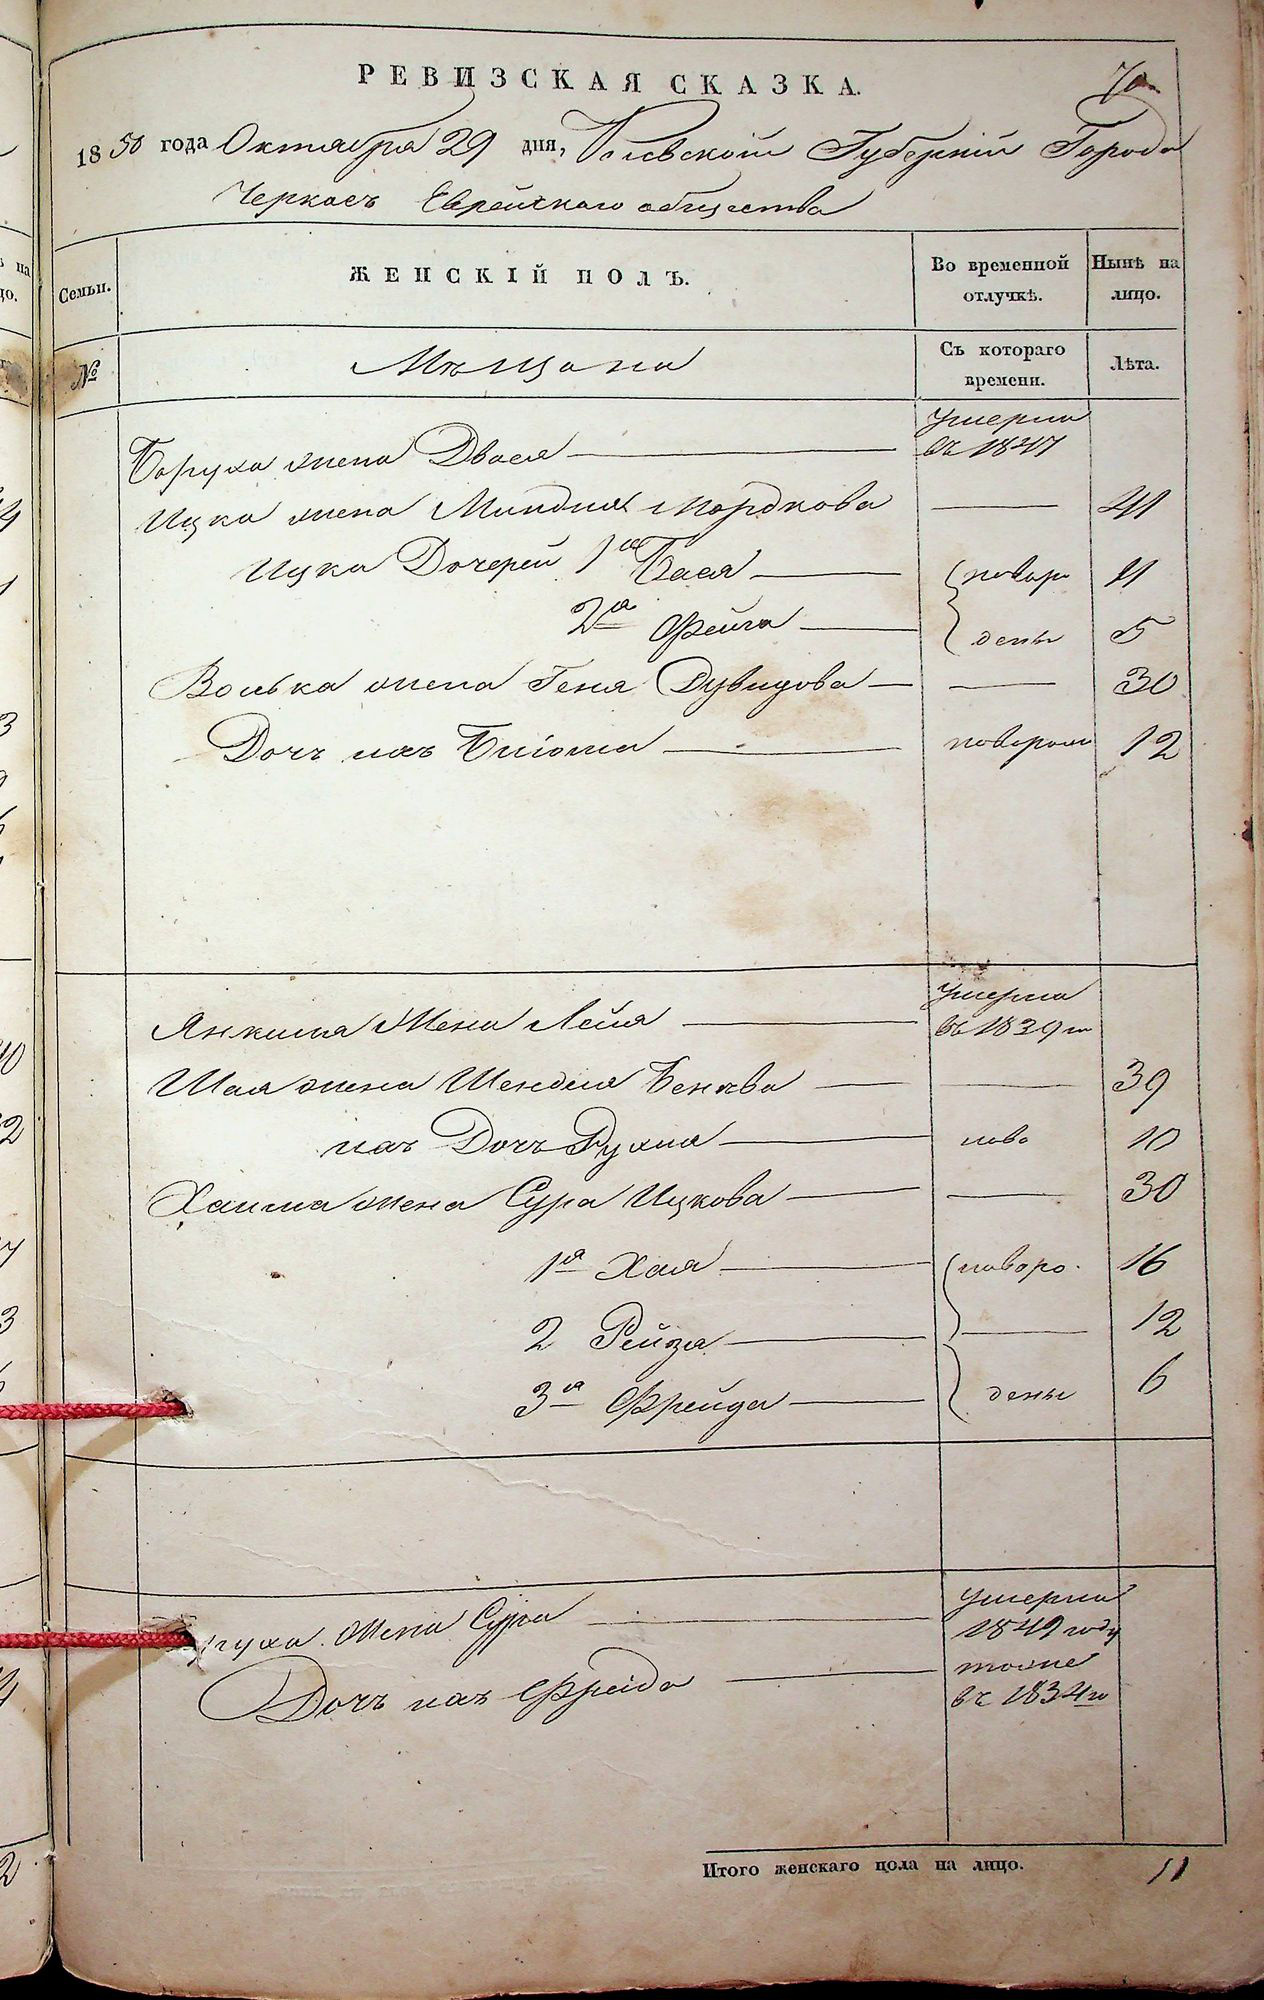 РЕВИЗСКАЯ СКАЗКА.
70
1850 года Октября 29 дня, Киевской Губерній Города
Черкасъ Еврейскаго общества
Семьи.
ЖЕНСКІЙ ПОЛЪ.
Во временной отлучкѣ.
Нынѣ на лицо.
№
Мѣщана
Съ котораго времени.
Лѣта.
Боруха жена Двося — умерла въ 1847
Ицка жена Миндля Мордкова — 41
Ицка Дочерей 1я Бася — новоро 11
2я Фейга — дены 5
Волька жена Геня Дувидова — 30
Дочъ ихъ — новорож 12
Янкиля жена Лейя — умерла въ 1839 го
Шая жена Шендля — 39
ихъ Дочъ Рухля — ново 10
Хаима жена Сура Ицкова — 30
1я Хая — новоро. 16
2 Рейза — 12
3я Фрейда — дены 6
руха жена Сура — умерла 1849 году
Дочъ ихъ Фрейда — тоже въ 1834 го
Итого женскаго пола на лицо. 11